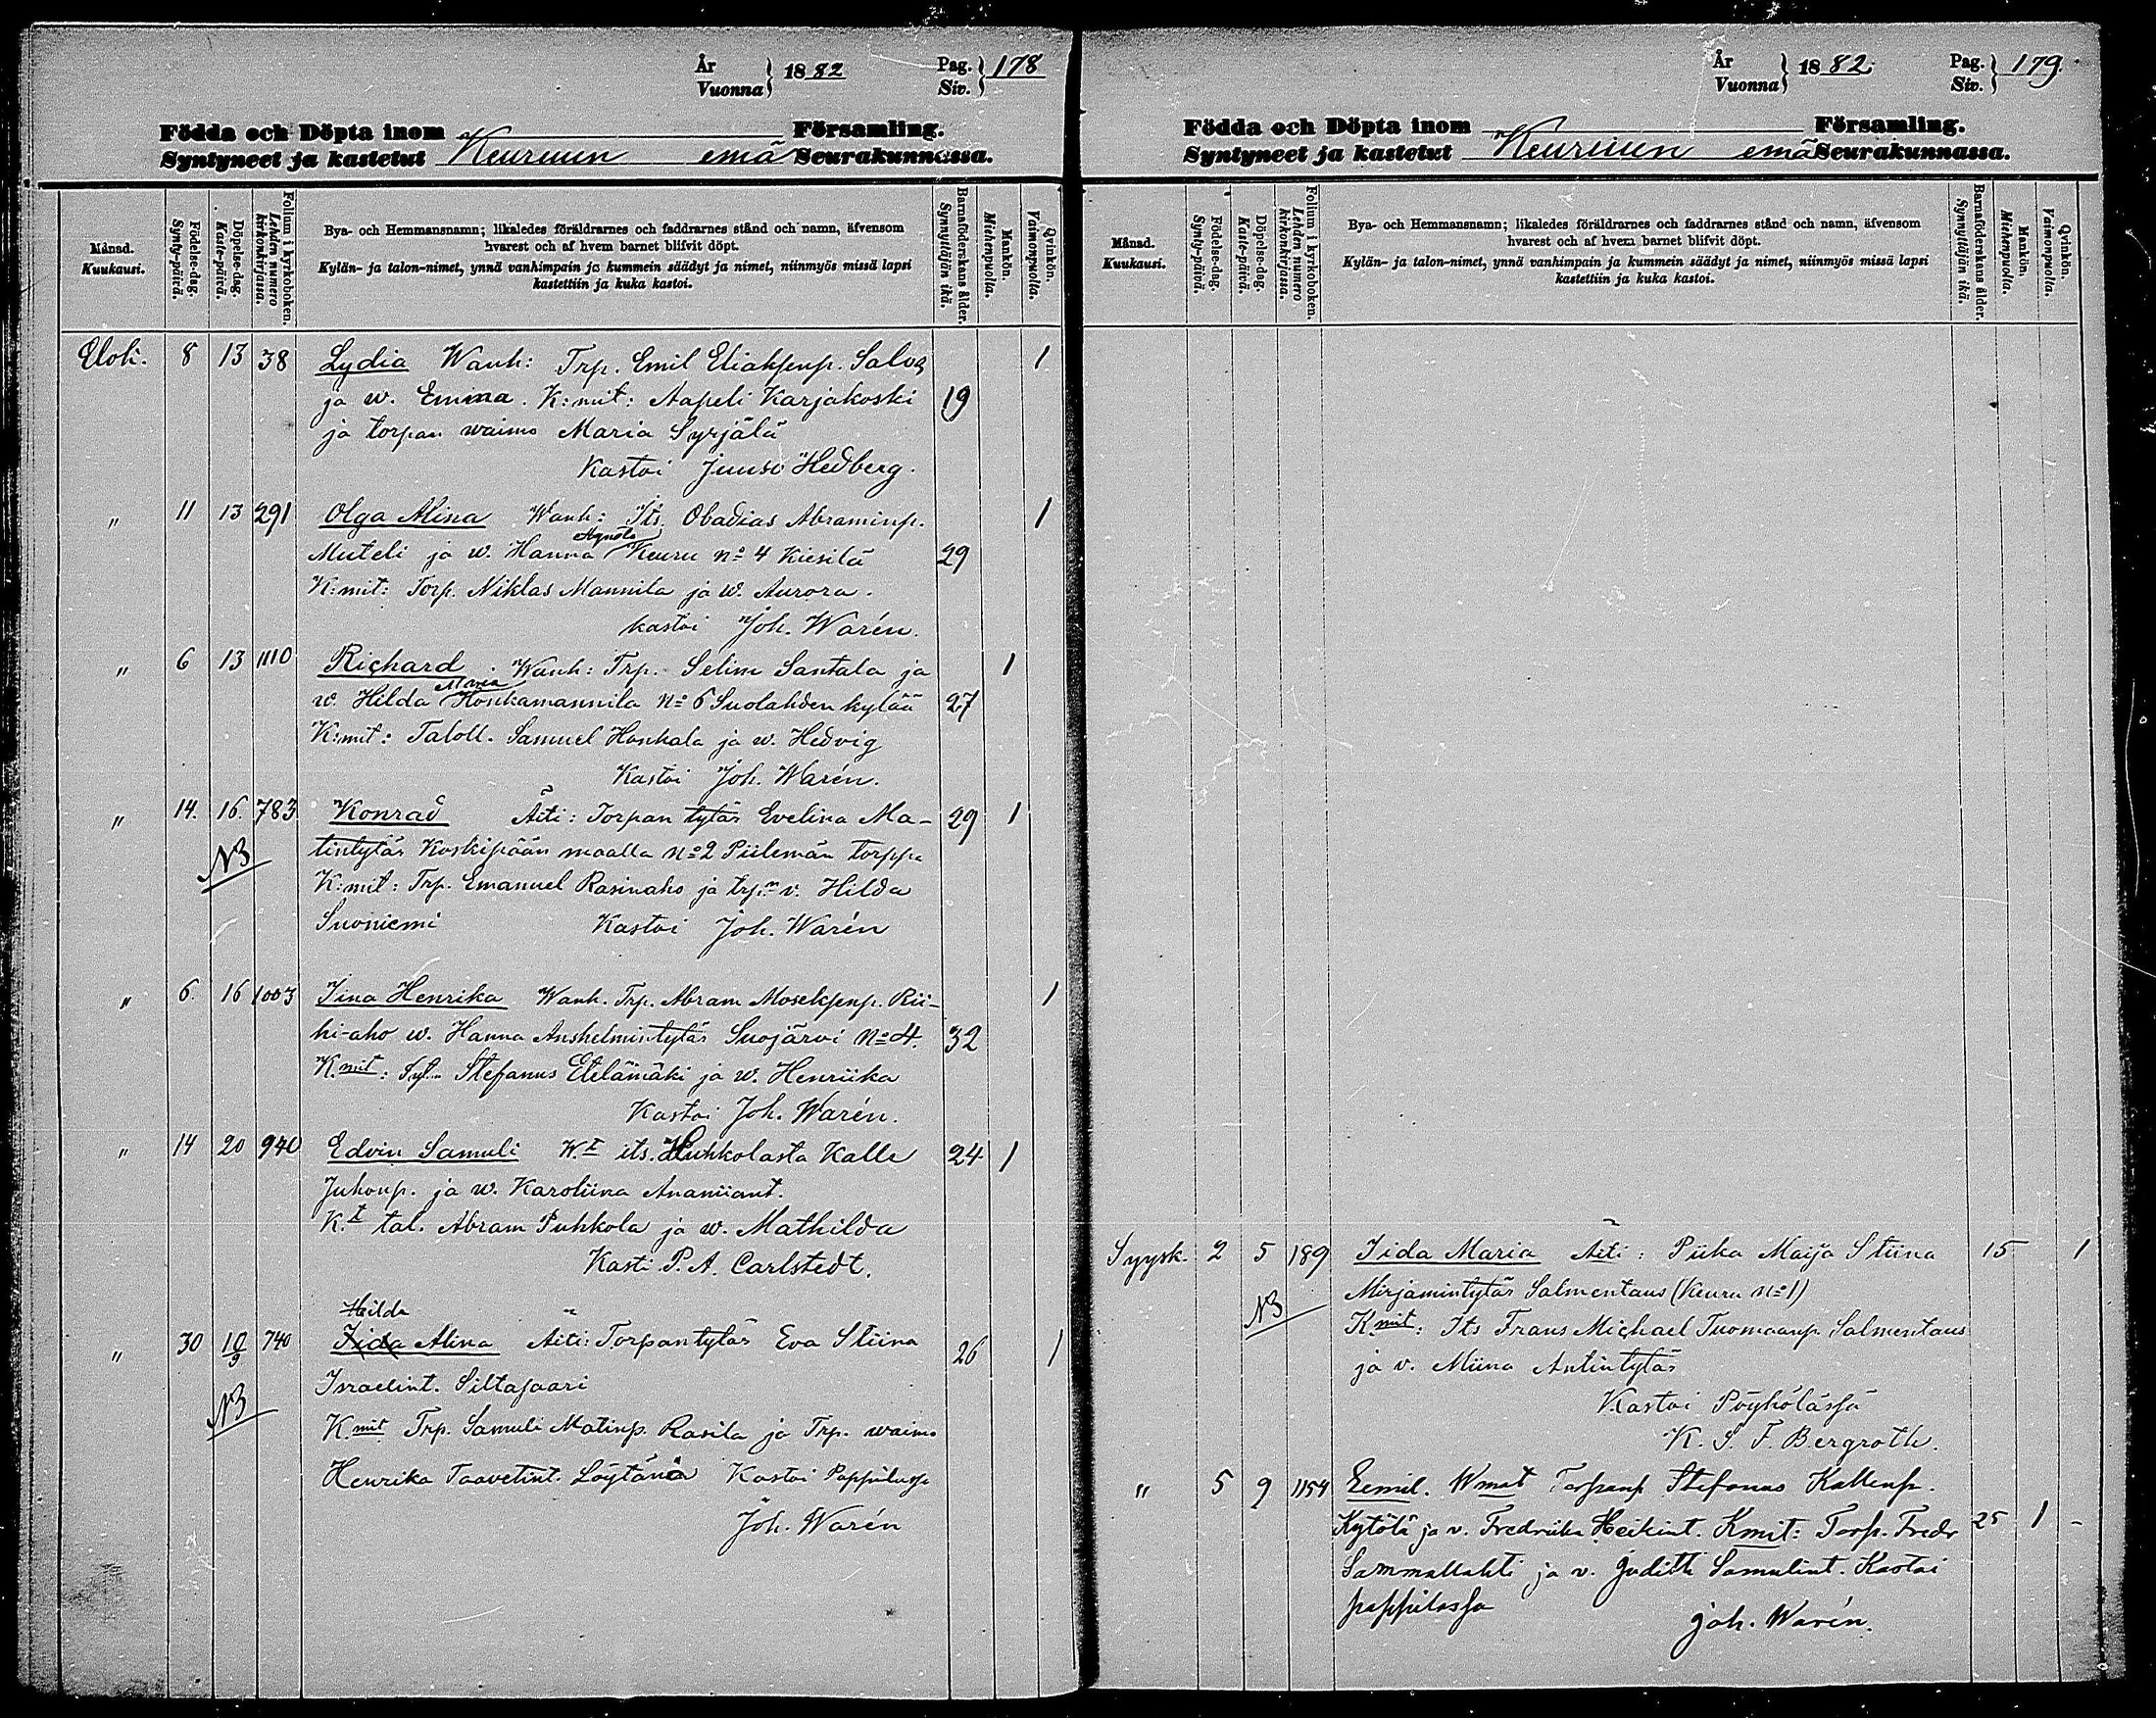 År
Vuonna } 1882 Pag.
Siv. } 178
Födda och Döpta inom Församling.
Syntyneet ja kastetut Keuruun emä Seurakunnassa.
Månad. Kuukausi.
Födelse-dag. Synty-päivä.
Döpelse-dag. Kaste-päivä.
Folium i kyrkoboken. Lehden numero kirkonkirjassa.
Bya- och Hemmansnamn; likaledes föräldrarnes och faddrarnes stånd och namn, äfvensom
hvarest och af hvem barnet blifvit döpt.
Kylän- ja talon-nimet, ynnä vanhimpain ja kummein säädyt ja nimet, niinmyös missä lapsi
kastettiin ja kuka kastoi.
Barnaföderskans ålder. Synnyttäjän ikä.
Mankön. Miehenpuolia.
Qvinkön. Vaimonpuolia.
Elok. 8 13 38 Lydia Wanh: Trp. Emil Eliaksenp. Salos 1
ja w. Emina. K:mit: Aapeli Karjakoski 19
ja torpan waimo Maria Syrjälä
Kastoi Juuso Hedberg.
" 11 13 291 Olga Alina Wanh: Its. Obadias Abraminp. 1
Agneta
Muteli ja w. Hanna Keuru No 4 Kiesilä 29
K:mit: Torp. Niklas Mannila ja w. Aurora.
kastoi Joh. Warén.
" 6 13 1110 Richard. Wanh: Trp. Selim Santala ja 1
Maria
w. Hilda Honkamannila No 6 Suolahden kylää 27
K:mit: Taloll. Samuel Honkala ja w. Hedvig
Kastoi Joh. Warén.
" 14. 16. 783 Konrad Äiti: Torpan tytär Evelina Ma- 29 1
NB tintytär Koskipään maalla No 2 Piilemän torppa
K:mit: Trp. Emanuel Rasinaho ja trp:n v. Hilda
Suoniemi Kastoi Joh. Warén
" 6. 16 1003 Iina Henrika Wanh. Trp. Abram Moseksenp. Rii- 1
hi-aho w. Hanna Anshelmintytär Suojärvi No 4. 32
K.mit: Stefanus Etelämäki ja w. Henriika
Kastoi Joh. Warén.
" 14 20 940 Edvin Samuli W.t its. Huhkolasta Kalle 24 1
Juhonp. ja w. Karoliina Ananiiant.
K.t tal. Abram Puhkola ja w. Mathilda
Kasti P. A. Carlstedt.
Hilda
" 30 10/9 740 Iida Alina Äiti: Torpantytär Eva Stiina 26 1
Israelint. Siltasaari
NB K.mit Trp. Samuli Matinp. Rasila ja Trp. waimo
Henrika Taavetint. Löytänä Kastoi Pappilassa
Joh. Warén
År
Vuonna } 1882 Pag.
Siv. } 179.
Födda och Döpta inom Församling.
Syntyneet ja kastetut Keuruun emä Seurakunnassa.
Månad. Kuukausi.
Födelse-dag. Synty-päivä.
Döpelse-dag. Kaste-päivä.
Folium i kyrkoboken. Lehden numero kirkonkirjassa.
Bya- och Hemmansnamn; likaledes föräldrarnes och faddrarnes stånd och namn, äfvensom
hvarest och af hvem barnet blifvit döpt.
Kylän- ja talon-nimet, ynnä vanhimpain ja kummein säädyt ja nimet, niinmyös missä lapsi
kastettiin ja kuka kastoi.
Barnaföderskans ålder. Synnyttäjän ikä.
Mankön. Miehenpuolia.
Qvinkön. Vaimonpuolia.
Syysk. 2 5 189 Iida Maria Äiti: Piika Maija Stiina 15 1
NB Mirjamintytär Salmentaus (Keuru No 1)
K.mit: Its Frans Michael Tuomaanp Salmentaus
ja v. Miina Antintytär
Kastoi Pöyhölässä
K. S. F. Bergroth.
" 5 9 1154 Eemil. Wmat Torpanp Stefanus Kallenp.
Kytölä ja v. Fredriika Heikint. Kmit: Torp. Fredr 25 1 -
Sammallahti ja v. Judith Samulint. Kastoi
pappilassa
Joh. Warén.